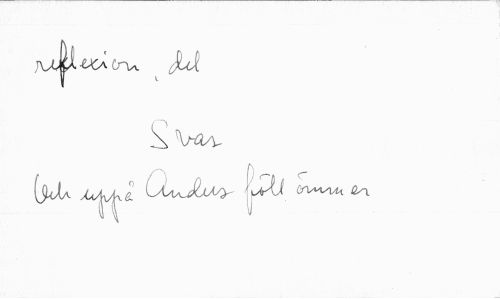 reflexion, del
Svar
Och uppå Anders föll ömmer